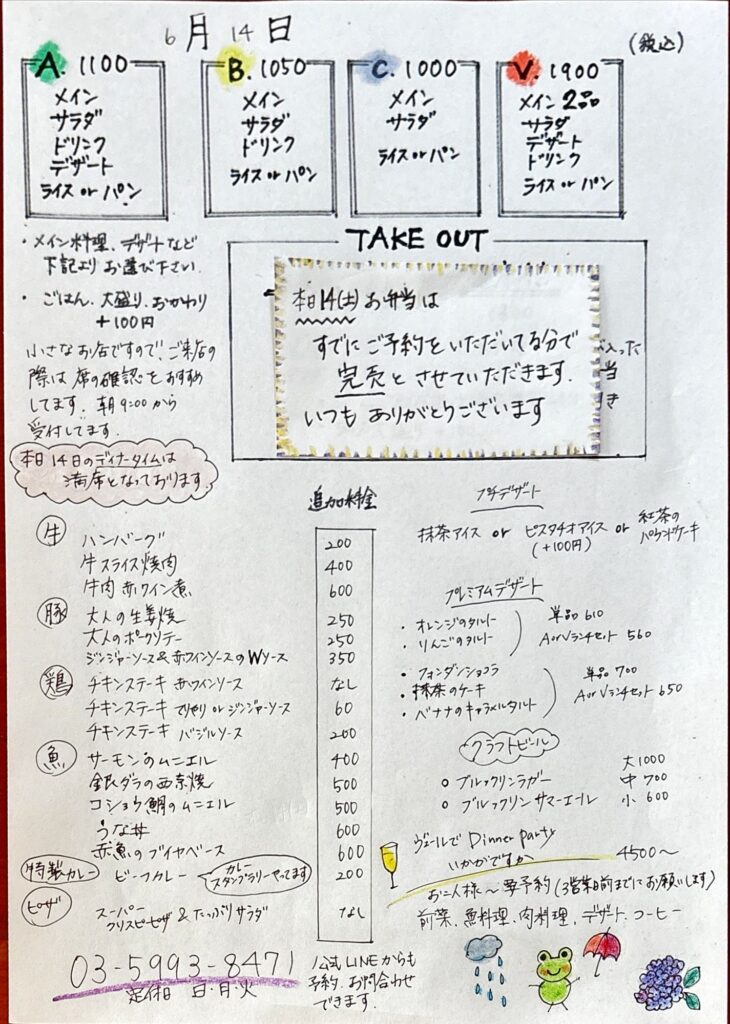 6月14日
(税込)
A. 1100
メイン
サラダ
ドリンク
デザート
ライス or パン
B. 1050
メイン
サラダ
ドリンク
ライス or パン
C. 1000
メイン
サラダ
ライス or パン
V. 1900
メイン 2品
サラダ
デザート
ドリンク
ライス or パン
・メイン料理、デザートなど
下記よりお選び下さい。
・ごはん、大盛り、おかわり
+100円
小さなお店ですので、ご来店の
際は 席の確認をおすすめ
してます。朝9:00から
受付してます。
本日14日のディナータイムは
満席となっております。
TAKE OUT
本日14(土)お弁当は
すでにご予約をいただいてる分で
完売とさせていただきます.
いつも ありがとうございます
入った
当
き
追加料金
牛
ハンバーグ 200
牛スライス焼肉 400
牛肉赤ワイン煮 600
豚
大人の生姜焼 250
大人のポークソテー 250
ジンジャーソース&赤ワインソースのWソース 350
鶏
チキンステーキ 赤ワインソース なし
チキンステーキ てりやり or ジンジャーソース 60
チキンステーキ バジルソース 200
魚
サーモンのムニエル 400
銀ダラの西京焼 500
コショウ鯛のムニエル 500
うな丼 600
赤魚のブイヤベース 600
特製カレー
ビーフカレー 200
カレー
スタンプラリーやってます
ピザ
スーパー
クリスピーピザ & たっぷりサラダ なし
プチデザート
抹茶アイス or ピスタチオアイス or 紅茶の
パウンドケーキ
(+100円)
プレミアムデザート
・オレンジのタルト
・りんごのタルト
単品 610
A or Vランチセット 560
・フォンダンショコラ
・抹茶のケーキ
・バナナのキャラメルタルト
単品 700
A or Vランチセット 650
クラフトビール
○ ブルックリンラガー
○ ブルックリンサマーエール
大 1000
中 700
小 600
ヴェールで Dinner Party
いかがですか
4500〜
お二人様〜要予約(3営業日前までにお願いします)
前菜、魚料理、肉料理、デザート、コーヒー
03-5993-8471
定休日 日・月・火
公式LINEからも
予約、お問合わせ
できます.